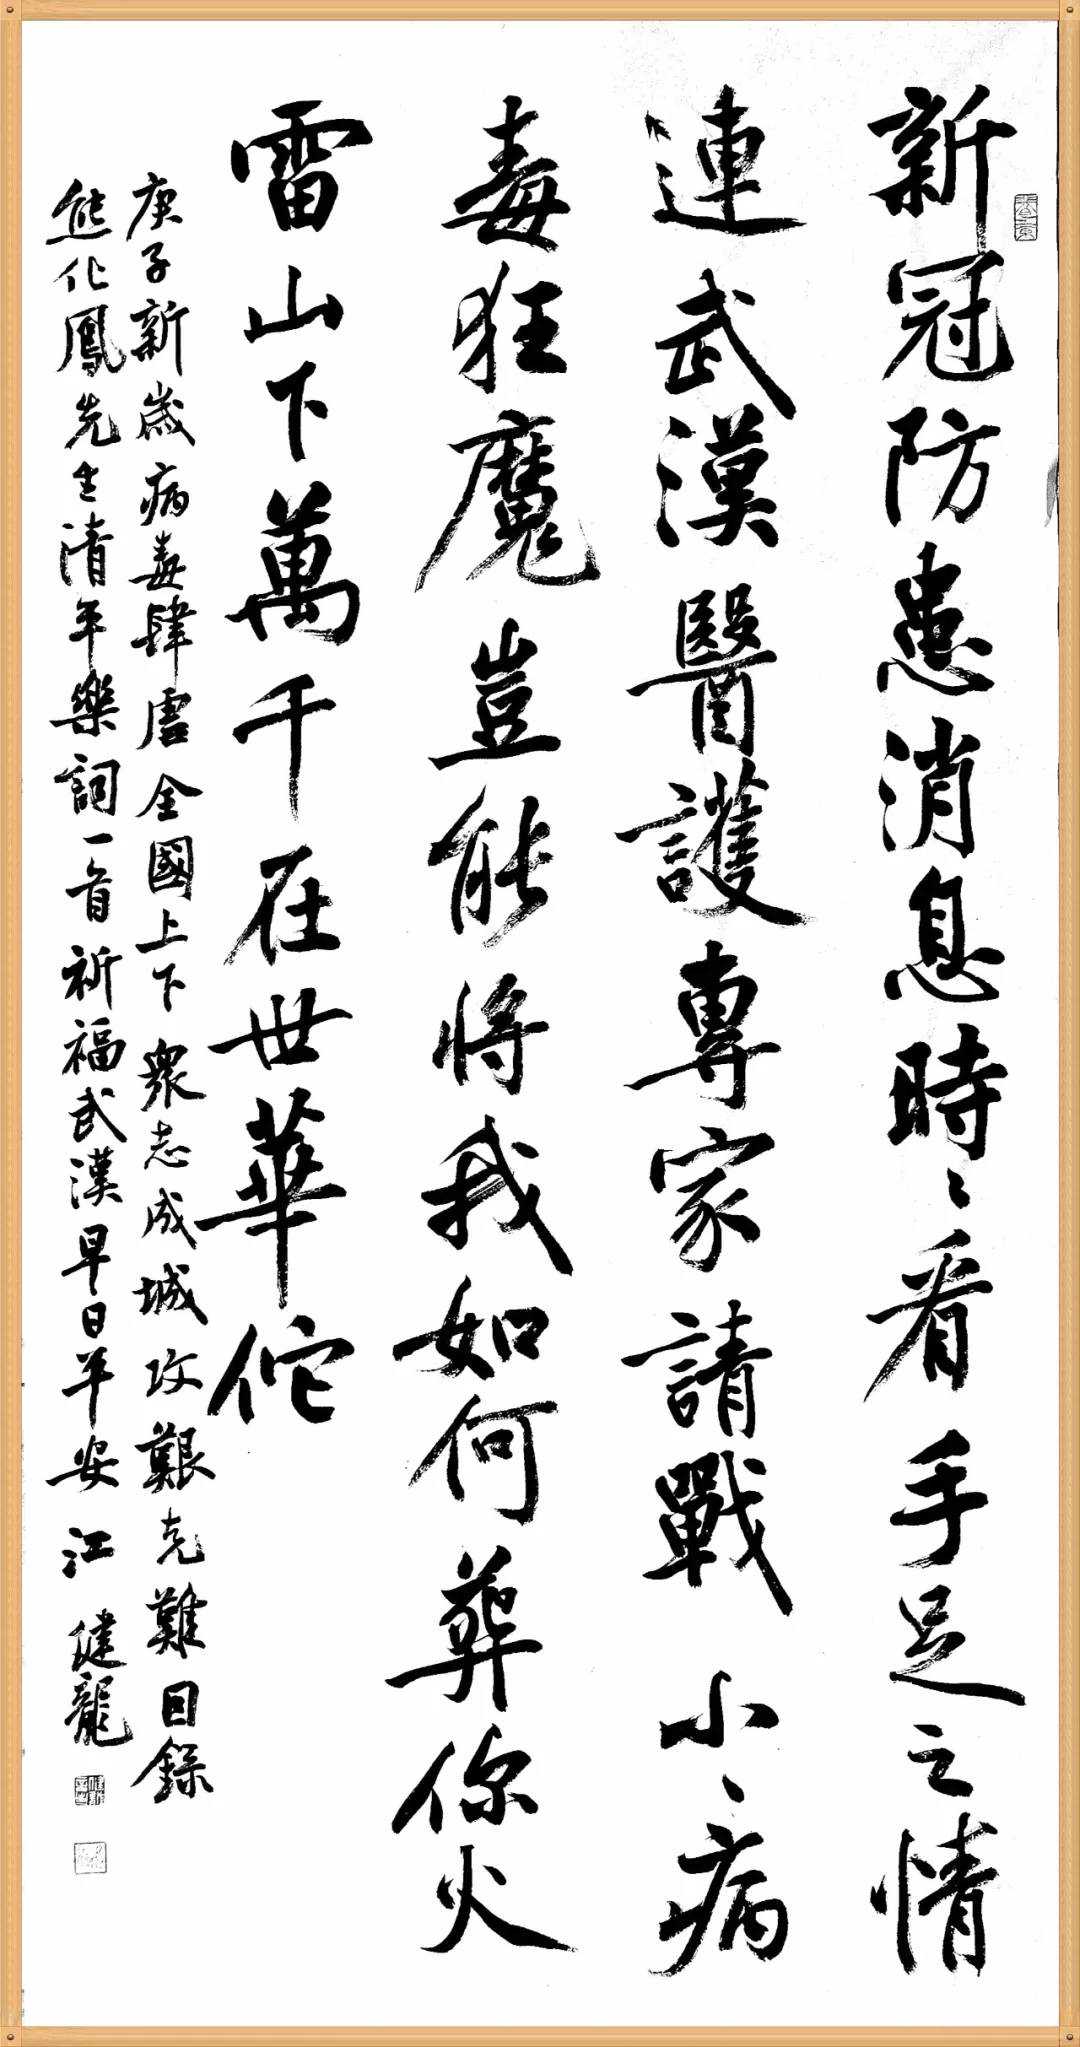 新冠防患消息時〻看手足之情
連武漢醫護專家請戰小〻病
毒狂魔豈能將我如何葬你火
雷山下萬千在世華佗
庚子新歲病毒肆虐全國上下眾志成城攻艱克難因錄
熊化鳳先生清平樂詞一首祈福武漢早日平安江健龍